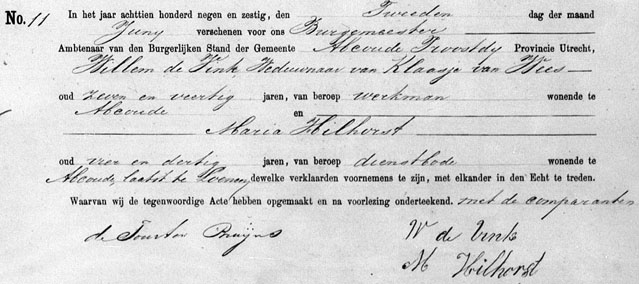 No. 11 In het jaar achttien honderd negen en zestig, den Tweeden dag der maand
Juny verschenen voor ons Burgemeester
Ambtenaar van den Burgerlijken Stand der Gemeente Abcoude Proostdy Provincie Utrecht,
Willem de Vink Weduwnaar van Klaasje van Wees
oud zeven en veertig jaren, van beroep werkman wonende te
Abcoude en
Maria Hilhorst
oud vier en dertig jaren, van beroep dienstbode wonende te
Abcoude, laatst te Loenen, dewelke verklaarden voornemens te zijn, met elkander in den Echt te treden.
Waarvan wij de tegenwoordige Acte hebben opgemaakt en na voorlezing onderteekend. met de comparanten
de Bruijns W de Vink
M Hilhorst